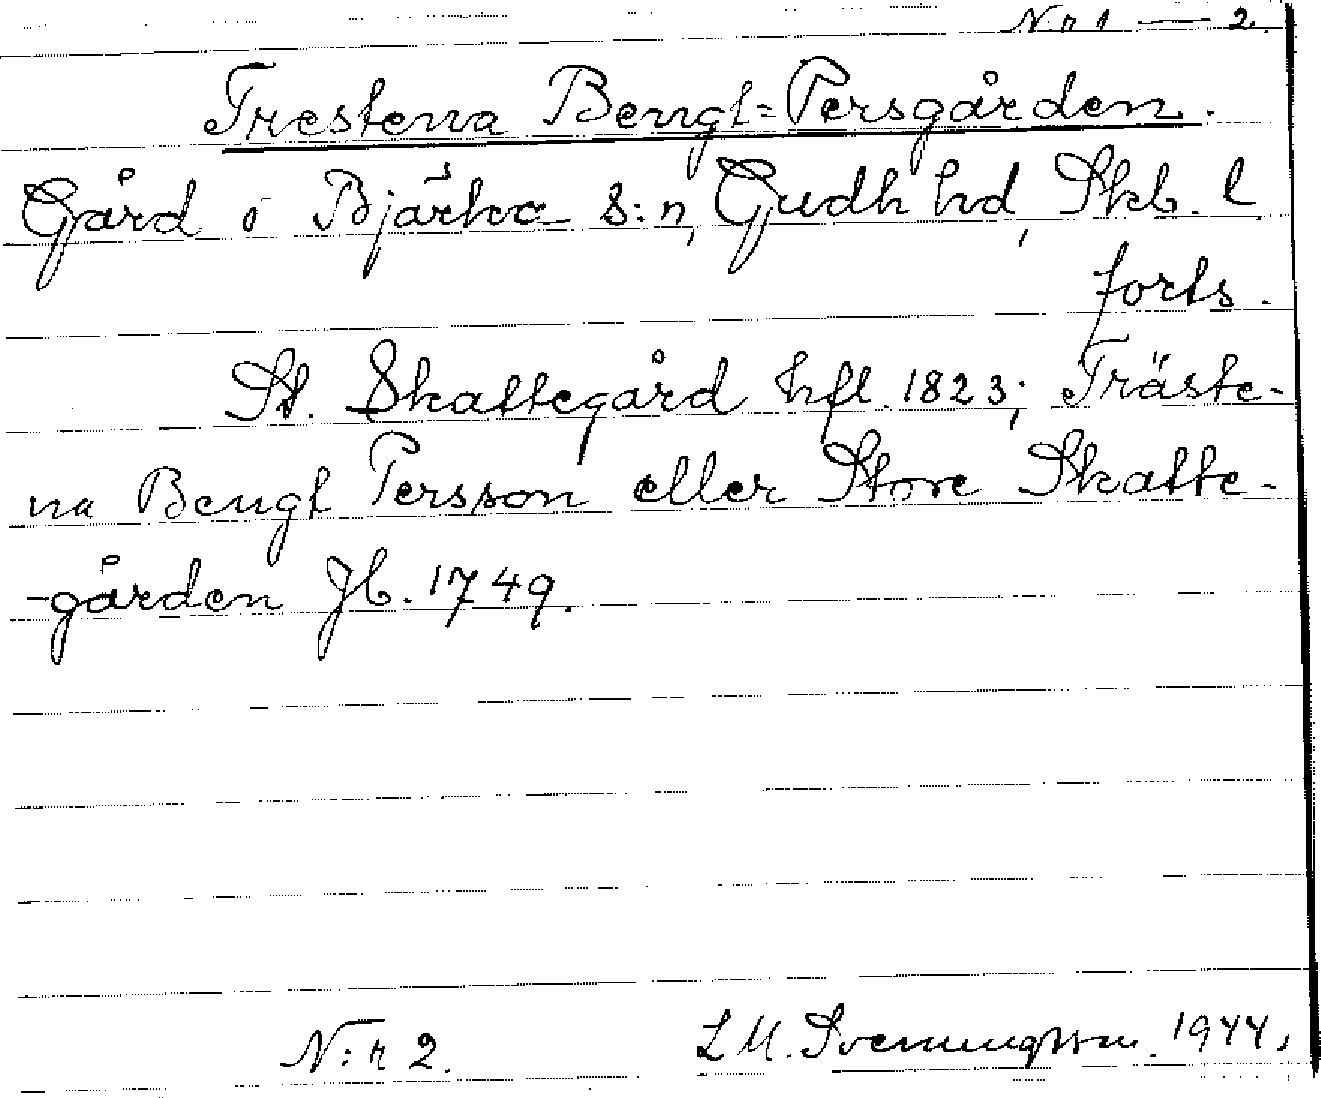 Nr 1 — 2.
Trestena Bengt=Persgården.
Gård i Bjärka s:n, Gudh hd, Skb. l.
forts.
St. Skattegård hfl. 1823; Träste-
na Bengt Persson eller Store Skatte-
-gården Jb. 1749.
N:r 2.
L M. Svenungsson. 1944.